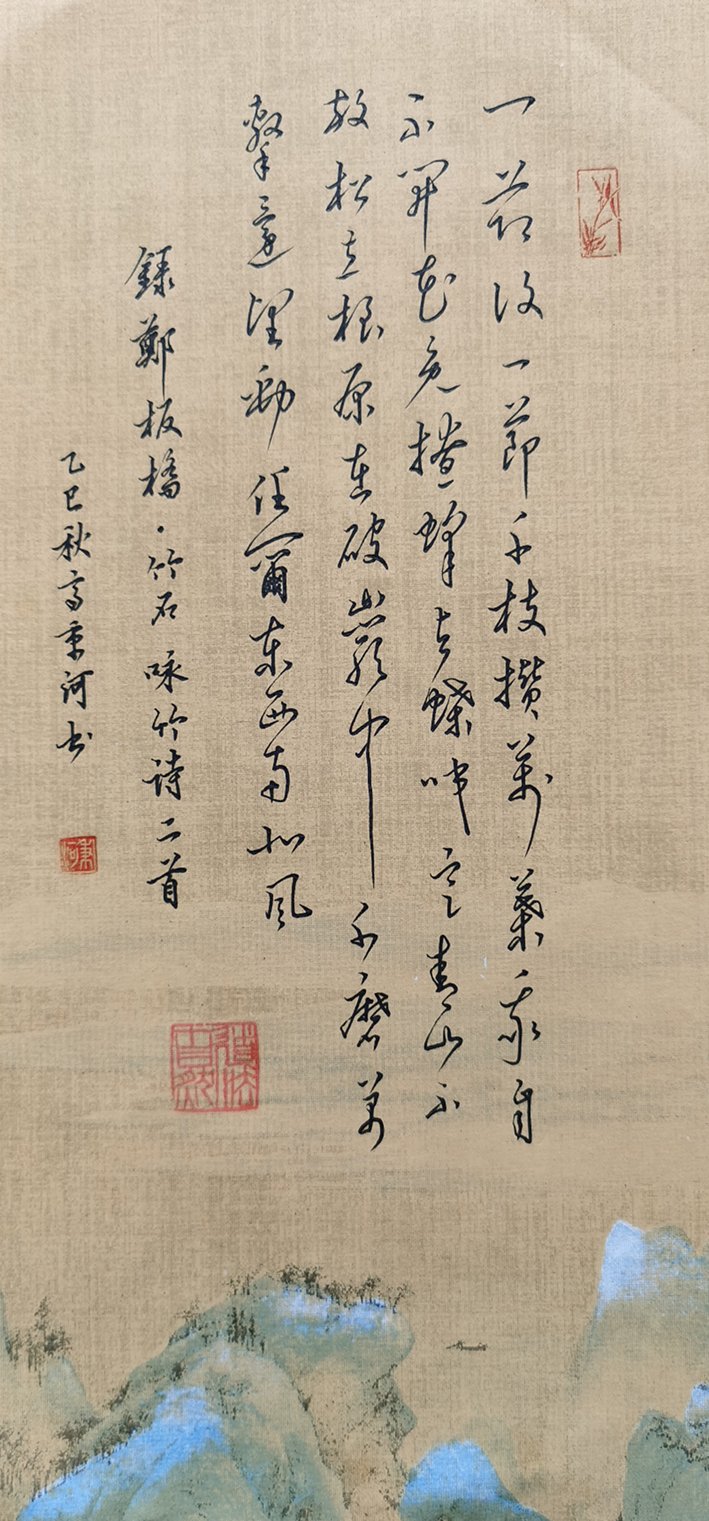 一节復一節千枝攢萬葉我自
不開花免撩蜂与蝶咬定青山不
放松立根原在破巖中千磨萬
擊還堅勁任爾東西南北風
錄鄭板橋·竹石 咏竹诗二首
乙巳秋高秉河书
秉河
道法自然